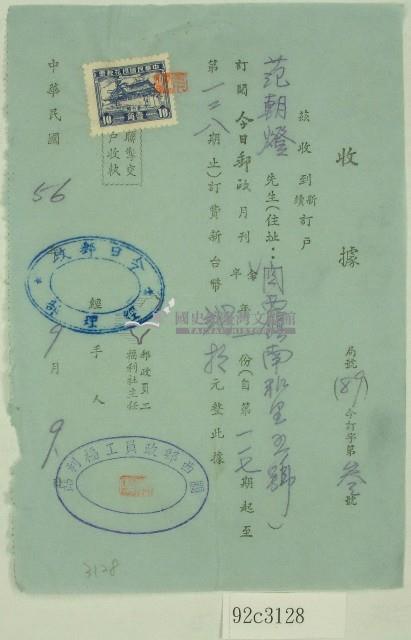 收據
局號(189)今訂字第叁號
茲收到新續訂戶
范朝燈先生(住址：關西鎮南雅里五號)
訂閱今日郵政月刊全半年年份(自第一一七期起至
第一二八期止)訂費新台幣 拾元整此據
聯擊交
戶收執
郵政頁二
福利社主任
經手人
中華民國56年9月9
中華民國印花稅票
10 壹角 10
今日郵政
經理部
關西郵政員工福利社
國史館臺灣文獻館
TAIWAN HISTORICA
3128
92c3128